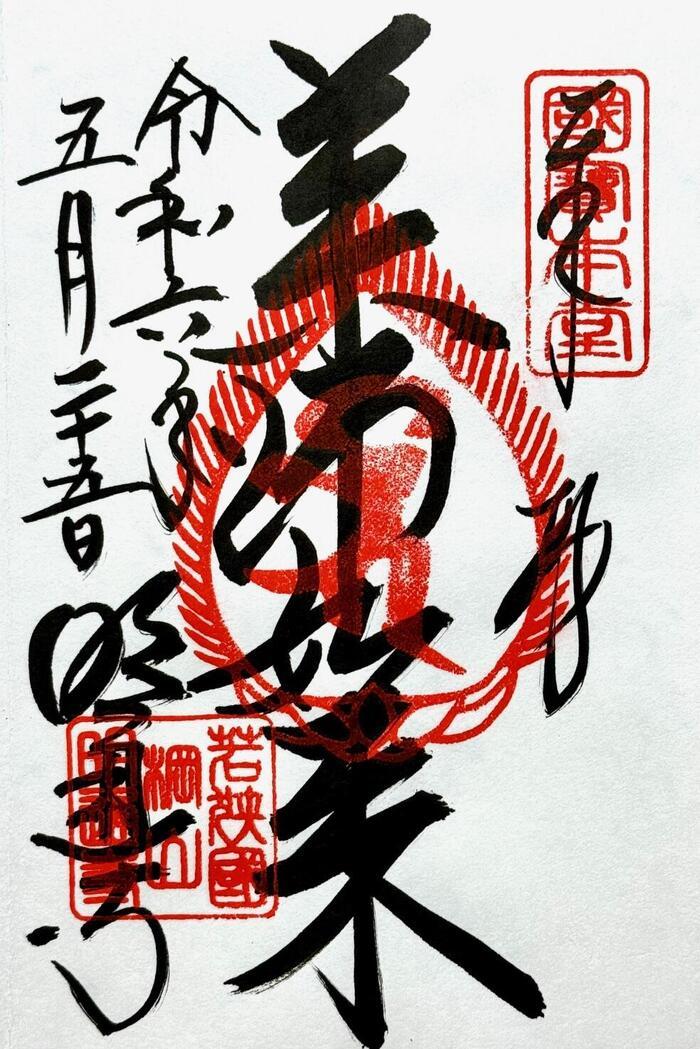 奉拝
國寶本堂
薬師如来
令和六年
五月二十五日
明通寺
若狭國
棡山
明通寺